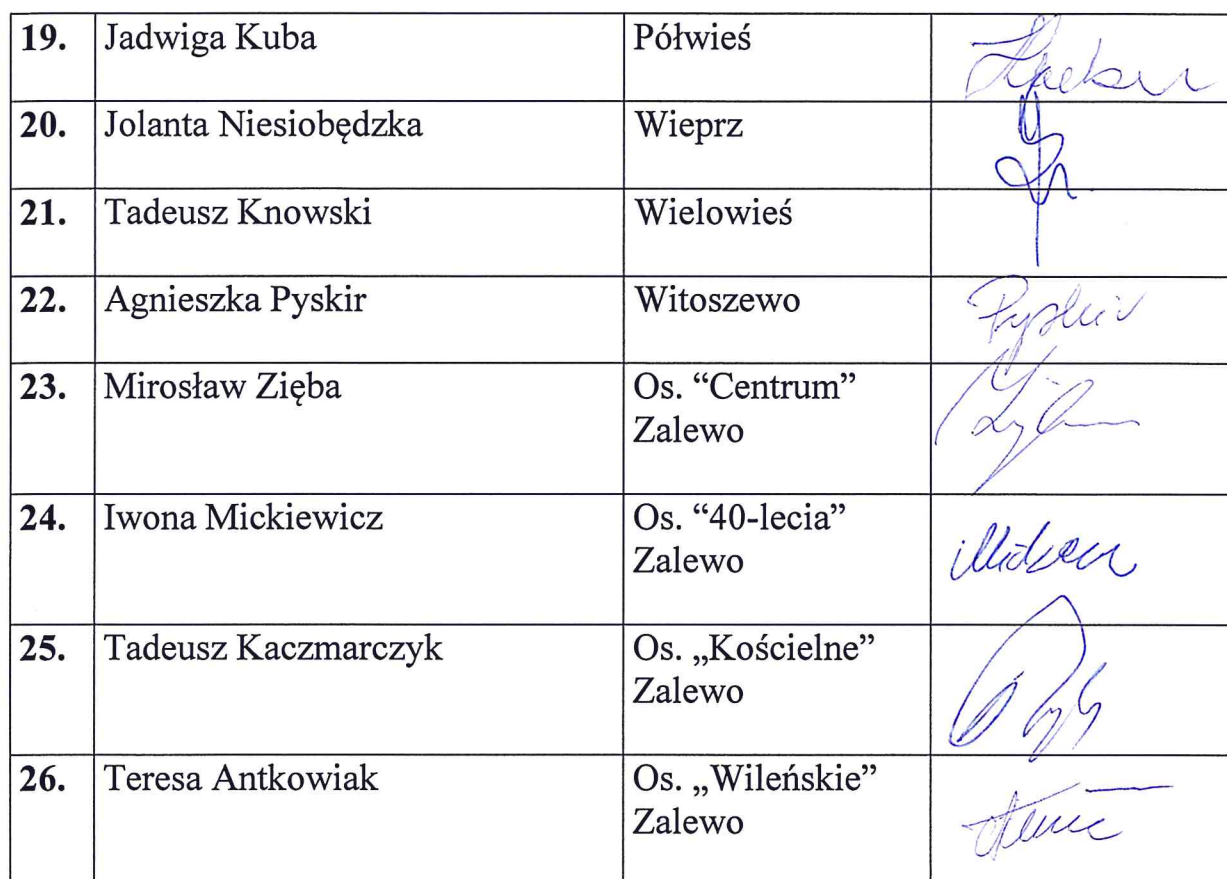 19. Jadwiga Kuba Półwieś
20. Jolanta Niesiobędzka Wieprz
21. Tadeusz Knowski Wielowieś
22. Agnieszka Pyskir Witoszewo Pyskir
23. Mirosław Zięba Os. “Centrum”
Zalewo
24. Iwona Mickiewicz Os. “40-lecia”
Zalewo
25. Tadeusz Kaczmarczyk Os. „Kościelne”
Zalewo
26. Teresa Antkowiak Os. „Wileńskie”
Zalewo